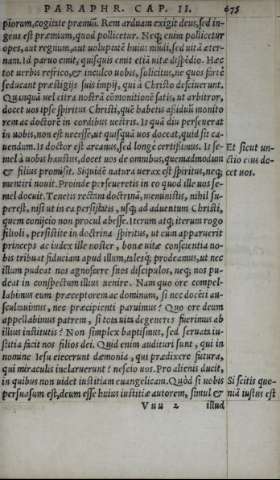 PARAPHR. CAP. II. 675
piorum, cogitate præmiũ. Rem arduam exigit deus, sed in-
gens est præmium, quod pollicetur. Neq; enim pollicetur
opes, aut regnum, aut uoluptatẽ huius mũdi, sed uitã æter-
nam. Id paruo emit, quisquis emit etiã uitæ dispẽdio. Hæc
tot uerbis refrico, & inculco uobis, solicitus, ne quos fortè
seducant præstigijs suis impij, qui à Christo desciuerunt.
Quanquã uel citra nostrã cõmonitionẽ satis, ut arbitror,
docet uos ipse spiritus Christi, quẽ habetis assiduũ monito
rem ac doctorẽ in cordibus uestris. Is quã diu perseuerat
in uobis, non est necesse, ut quisquã uos doceat, quid sit ca-
uendum. Is doctor est arcanus, sed longè certissimus. Is se-
Et sicut un-
mel à uobis haustus, docet uos de omnibus, quemadmodum
ctio eius do-
& filius promisit. Siquidẽ natura uerax est spiritus, neq;
cet uos.
mentiri nouit. Proinde perseueretis in eo quod ille uos se-
mel docuit. Tenetis rectam doctrinã, meministis, nihil su-
perest, nisi ut in ea persistatis, usq; ad aduentum Christi,
quem confido non procul abesse. Iterum atq; iterum rogo
filioli, persistite in doctrina spiritus, ut cum apparuerit
princeps ac iudex ille noster, bonæ uitæ conscientia no-
bis tribuat fiduciam apud illum, talesq; prodeamus, ut nec
illum pudeat nos agnoscere suos discipulos, neq; nos pu-
deat in conspectum illius uenire. Nam quo ore compel-
labimus eum præceptorem ac dominum, si nec docẽti aus-
cultauimus, nec præcipienti paruimus? Quo ore deum
appellabimus patrem, si tota uita degeneres fuerimus ab
illius institutis? Non simplex baptismus, sed seruata iu-
stitia facit nos filios dei. Quid enim audituri sunt, qui in
nomine Iesu eiecerunt dæmonia, qui prædixere futura,
qui miraculis inclaruerunt? nescio uos. Pro alienis ducit,
in quibus non uidet iustitiam euangelicam. Quòd si uobis
Si scitis quo-
persuasum est, deum esse huius iustitiæ autorem, simul &
niã iustus est
Vuu 2 illud